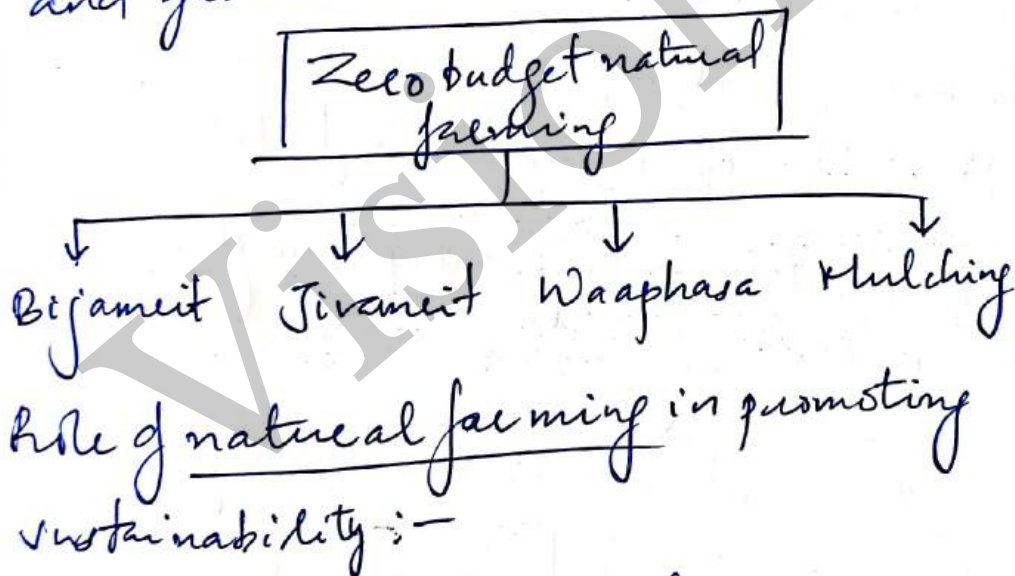 and
Zero budget natural
farming
Bijamrit Jivamrit Waaphasa Mulching
Role of natural farming in promoting
sustainability :-
Vision